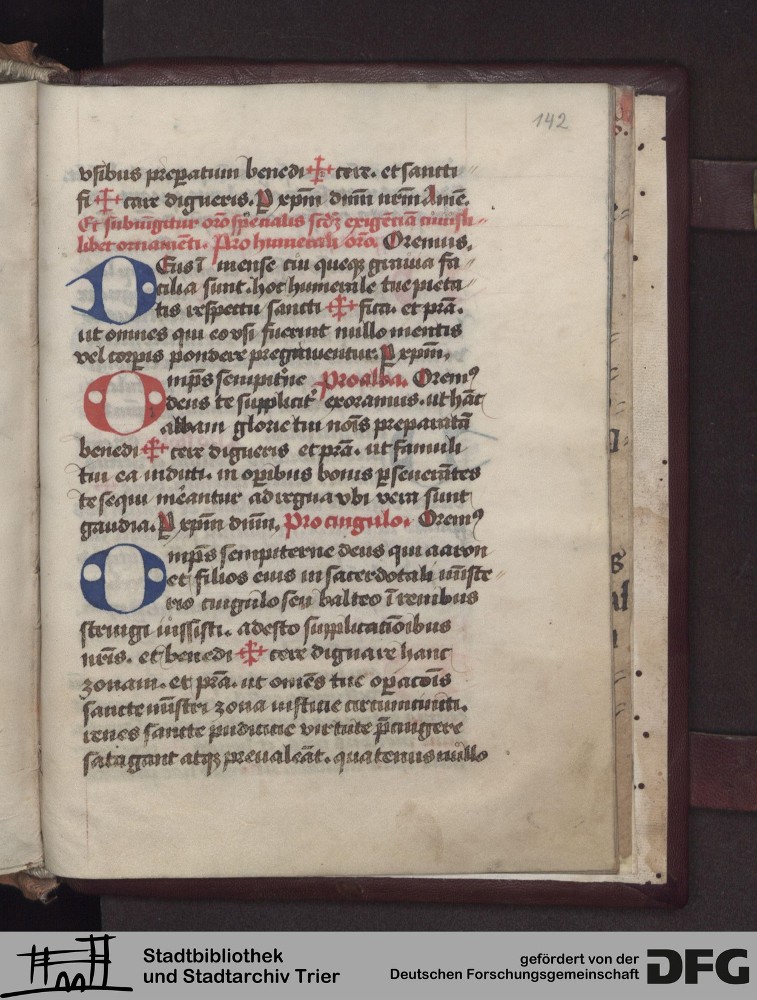 142
vsibus preparatum benedi✠cere. et sancti
fi✠care digneris. P xp̄m dn̄m nr̄m Amē.
Et subiūgitur oro specialis scd̄z exigēciā cuiusli
libet ornamēti. Pro humerali oro. Oremus.
Deus ī mense ciu queqz gratia fa
cilia sunt. hoc humerale tue pieta
tis respectu sancti ✠ fica. et pr̄a.
ut omnes qui eo vsi fuerint nullo mentis
vel corpis pondere pregrauentur. P xp̄m.
Omp̄s sempit'ne Pro alba. Orem9
deus te supplicit' exoramus. ut hāc
albam glorie tui noīs preparatā
benedi ✠ cere digneris et pr̄a. ut famuli
tui ea induti. in opibus bonis pseuerātes
te sequi mereantur ad regna vbi vera sunt
gaudia. P xp̄m dn̄m. Pro cingulo. Orem9
Omp̄s sempiterne deus qui aaron
et filios eius in sacerdotali mīste
rio cingulo seu balteo ī renibus
stringi iussisti. adesto supplicatiōibus
nr̄is. et benedi ✠ cere dignare hanc
zonam. et pr̄a. ut om̄es tue opacōis
sancte mīstri zona iusticie circumcincti.
renes sancte pudicicie virtute p̄cingere
satagant atqz preualeāt. quatenus nullo
Stadtbibliothek
und Stadtarchiv Trier
gefördert von der
Deutschen Forschungsgemeinschaft
DFG